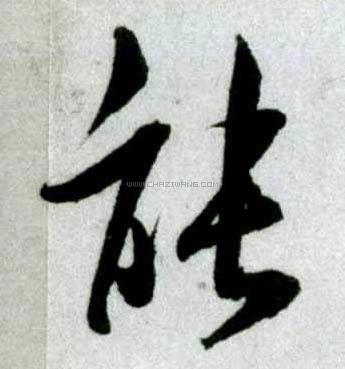 能
WWW.CHAZIWANG.COM